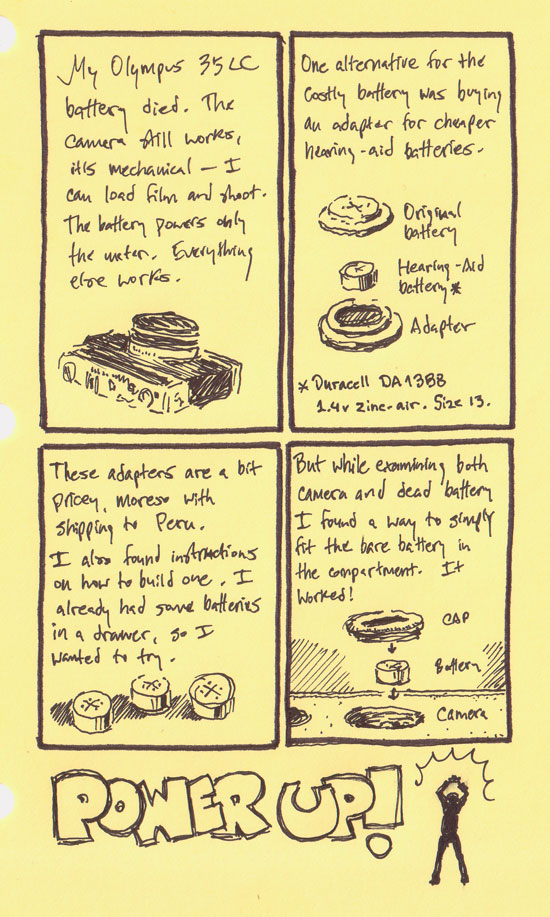 My Olympus 35 LC
battery died. The
camera still works,
it's mechanical — I
can load film and shoot.
The battery powers only
the meter. Everything
else works.
One alternative for the
costly battery was buying
an adapter for cheaper
hearing-aid batteries.
Original
battery
Hearing-Aid
battery*
Adapter
* Duracell DA13B8
1.4v zinc-air. Size 13.
These adapters are a bit
pricey, moreso with
shipping to Peru.
I also found instructions
on how to build one. I
already had some batteries
in a drawer, so I
wanted to try.
But while examining both
camera and dead battery
I found a way to simply
fit the bare battery in
the compartment. It
worked!
CAP
Battery
Camera
POWER UP!